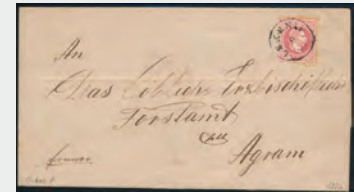 An
Das Löbliche Erzbischöfliche
Forstamt
zu
Agram
franco